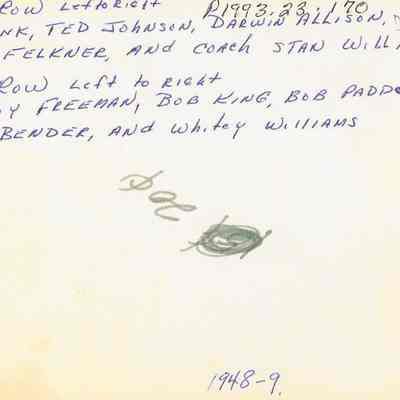 Row Left to Right P1993.23.170
NK, TED JOHNSON, DARWIN ALLISON,
FELKNER, AND COACH STAN WILLI
ROW Left to Right
Y FREEMAN, BOB KING, BOB PADD
BENDER, AND Whitey WILLIAMS
1948-9.